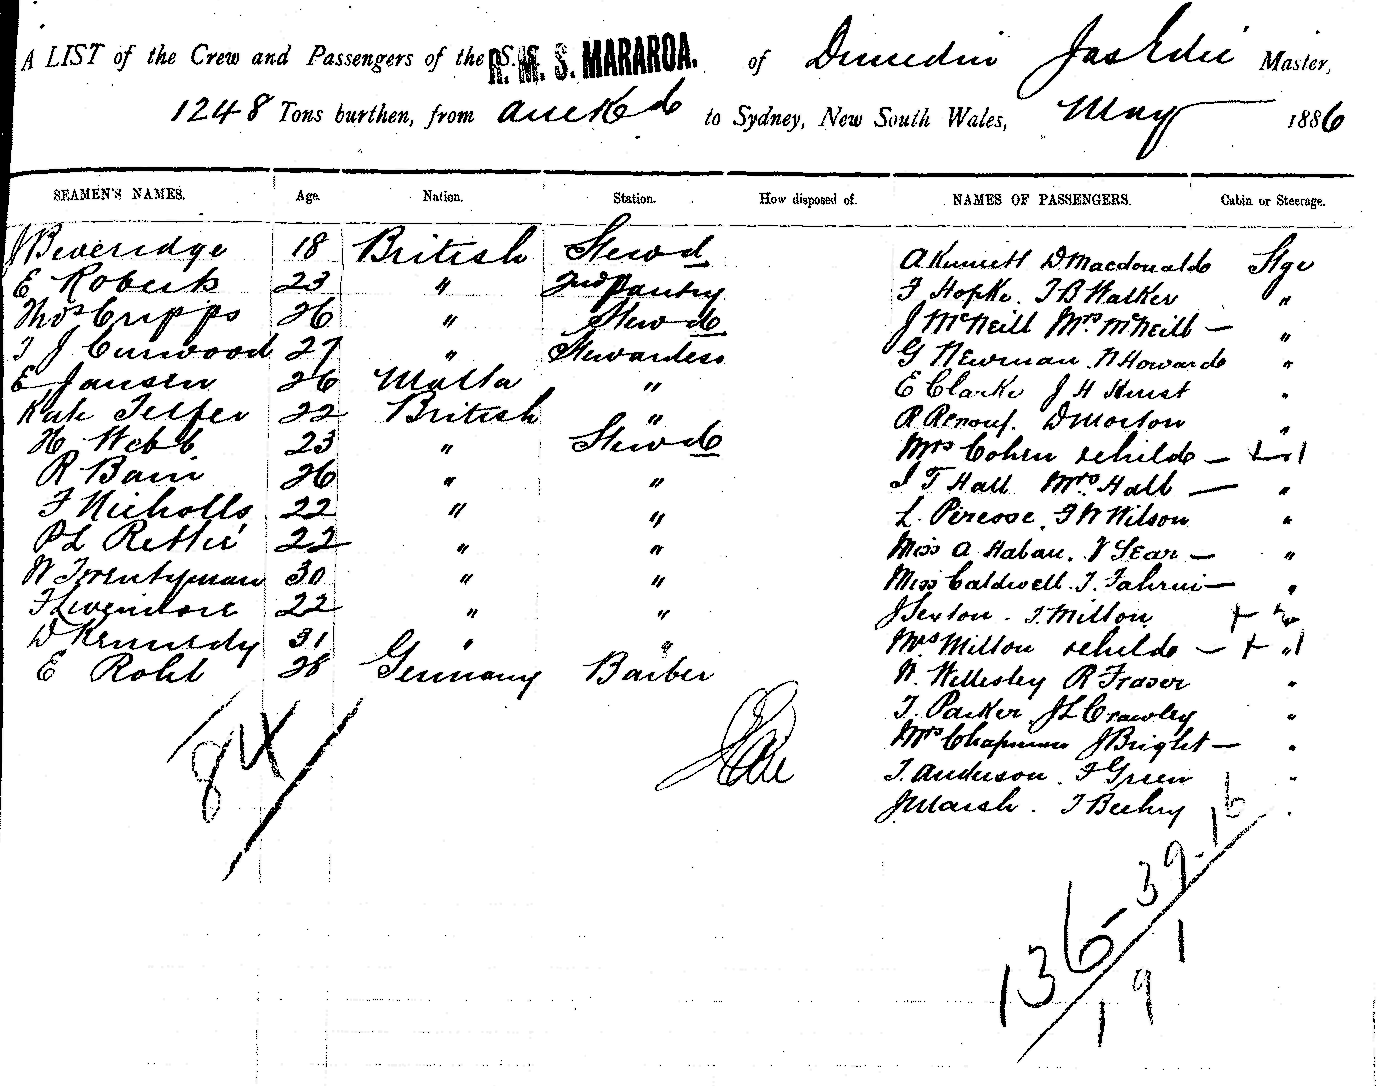 A LIST of the Crew and Passengers of the S.S. R. M. S. MARAROA. of Dunedin Jas Edie Master,
1248 Tons burthen, from Auckd to Sydney, New South Wales, May 1886
SEAMEN'S NAMES. Age. Nation. Station. How disposed of. NAMES OF PASSENGERS. Cabin or Steerage.
J Beveridge 18 British Stewd A Kunett D Macdonald Stge
E Roberts 23 " 2nd Pantry F Hopke. T B Walker "
Thos Cripps 26 " Stewd J McNeill Mrs McNeill — "
T J Curwood 27 " Stewardess G Newman N Howard "
E Jansen 26 Malta " E Clarke J H Hurst "
Kate Telfer 22 British " R Renouf. D Morton "
H Webb 23 " Stewd Mrs Cohen & child —
R Bain 26 " " J T Hall Mrs Hall — "
F Nicholls 22 " " L. Percose, F W Wilson "
P L Rettie 22 " " Miss A Haban. V Sear — "
W Twentyman 30 " " Miss Caldwell. T. Fahrni — "
F Livermore 22 " " J Sexton. T. Milton
D Kennedy 31 " " Mrs Milton & child — + " 1
E Roht 28 Germany Barber W. Wellesley R Fraser "
T. Parker J L Crawley "
Mrs Chapman J Bright — "
T. Anderson. F Green "
J Marsh. T Beehry "
84
136-39.16
191